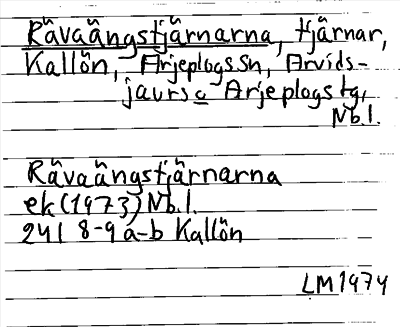 Rävaängstjärnarna, tjärnar,
Kallön, Arjeplogs sn, Arvids-
jaurs o Arjeplogs tg,
Nb.l.
Rävaängstjärnarna
ek (1973) Nb.l.
24I 8-9 a-b Kallön
LM 1974